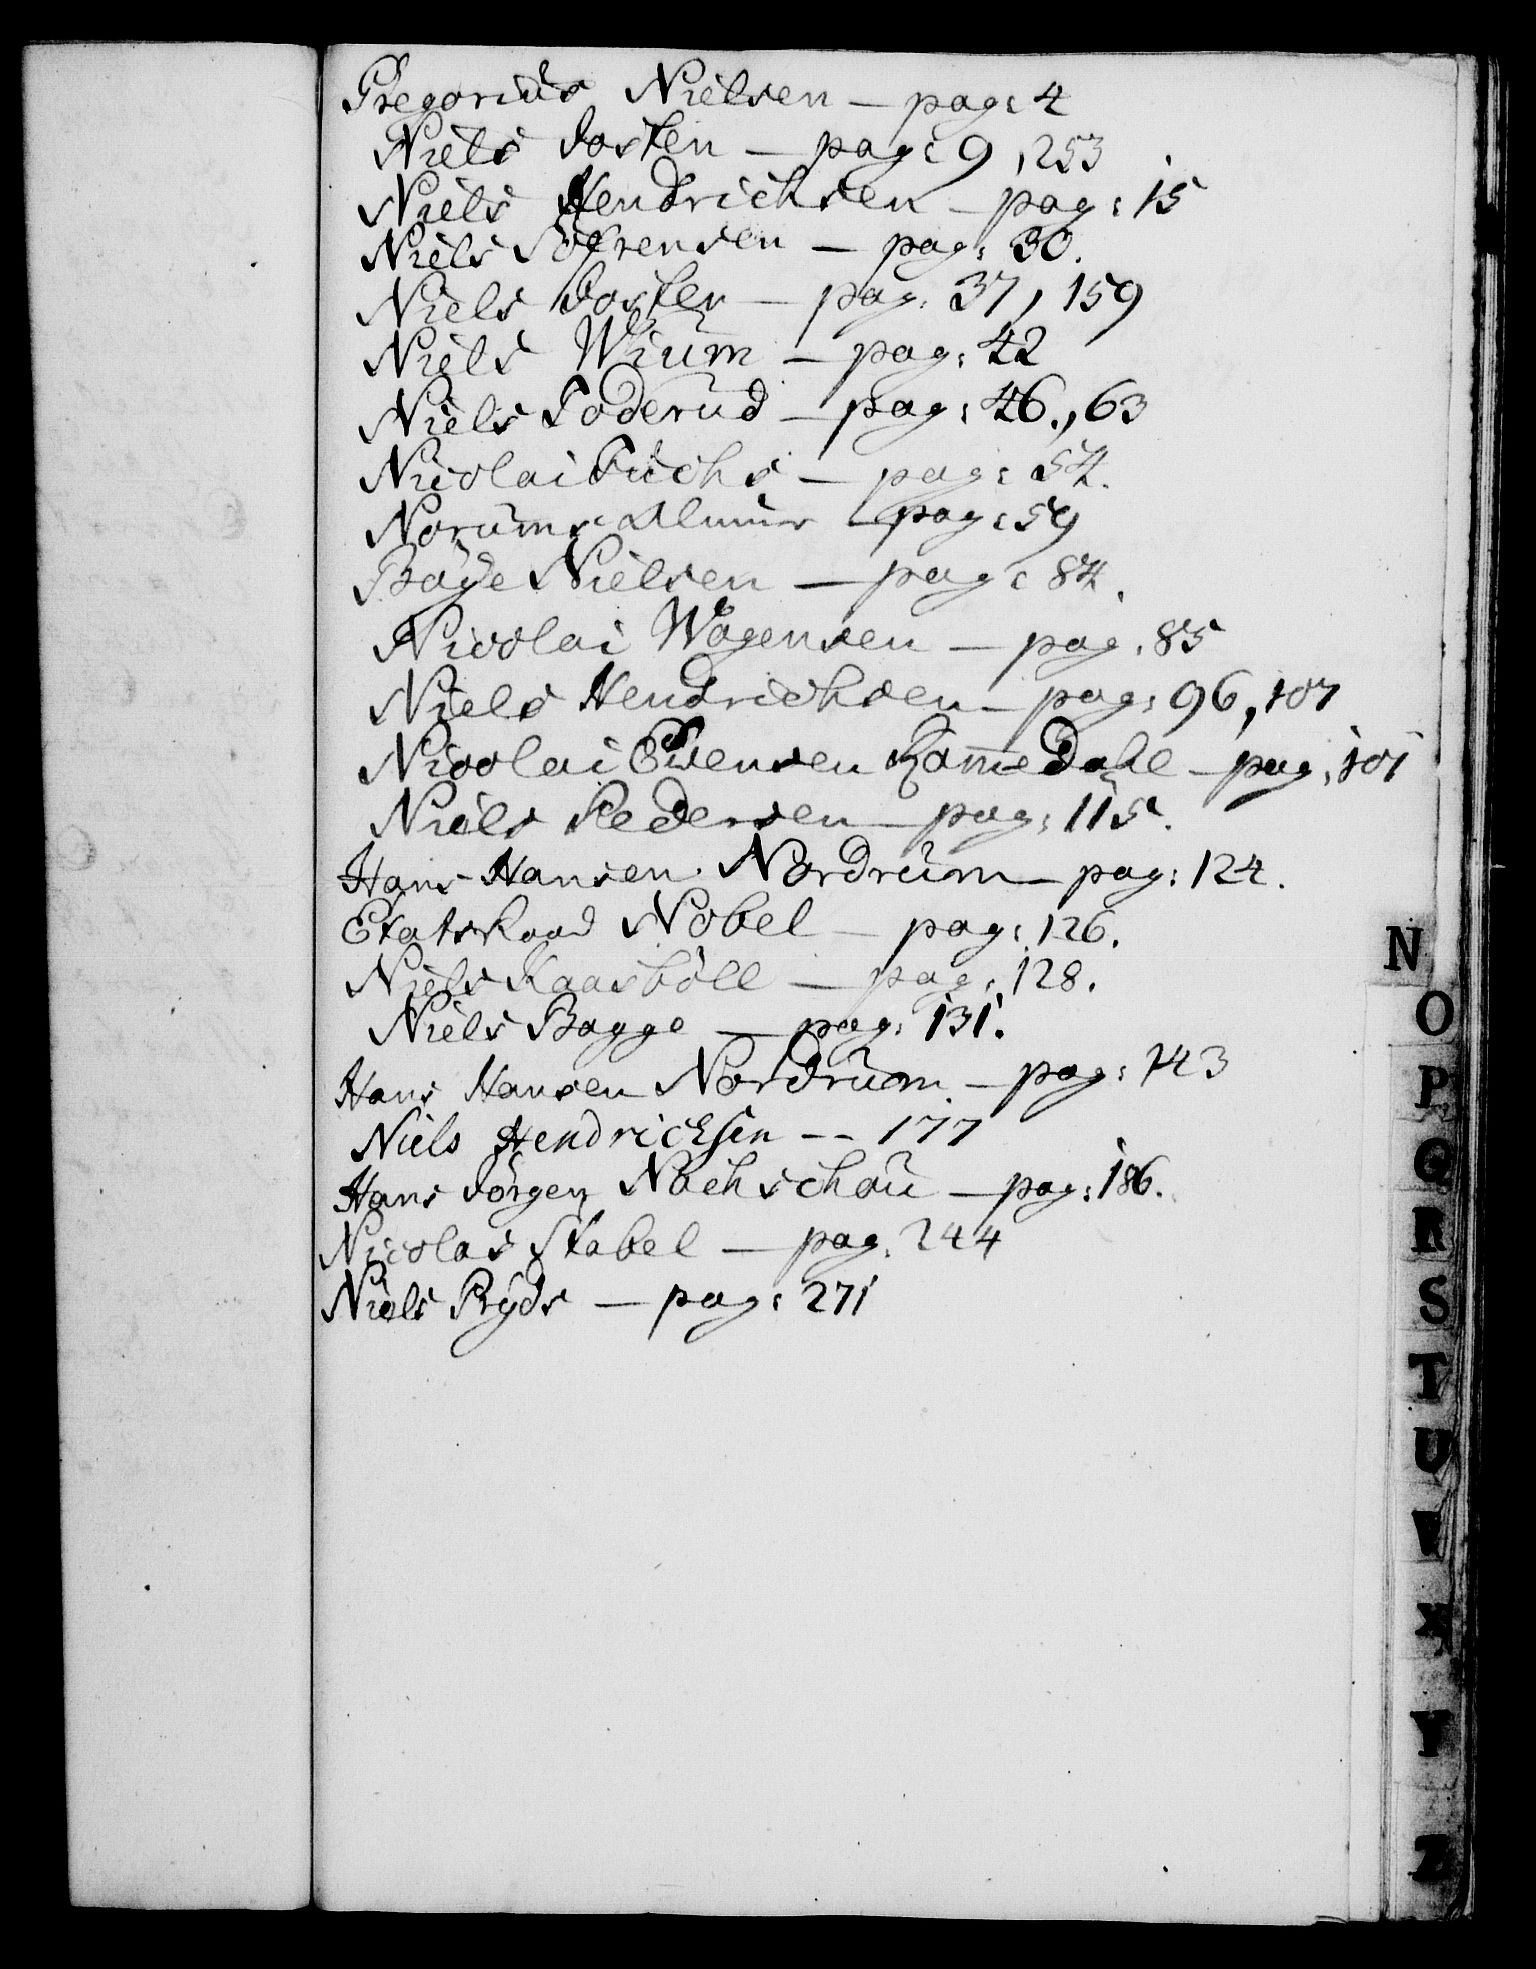 Gregorius Nielsen – pag: 4
Niels – pag: 9, 253
Niels Hendrichsen – pag: 15
Niels Sörensen – pag: 30.
Niels – pag: 37, 159
Niels Wium – pag: 42
Niels Foderud – pag: 46., 63
Nicolai Fuchs – pag: 54.
Norums – pag: 59
Böye Nielsen – pag: 84.
Nicolai Wagensen – pag. 85
Niels Hendrichsen – pag: 96, 107
Nicolai – pag. 101
Niels Pedersen – pag: 115.
Hans Hansen Nordrum – pag: 124.
EtatsRaad Nobel – pag: 126.
Niels Kaasböll – pag: 128.
Niels Bagge – pag: 131.
Hans Hansen Nordrum – pag: 143
Niels Hendrichsen -- 177
Hans Jörgen – pag: 186.
Nicolas Stabel – pag. 244
Niels – pag: 271
N
O
P
Q
R
S
T
U
V
X
Y
Z